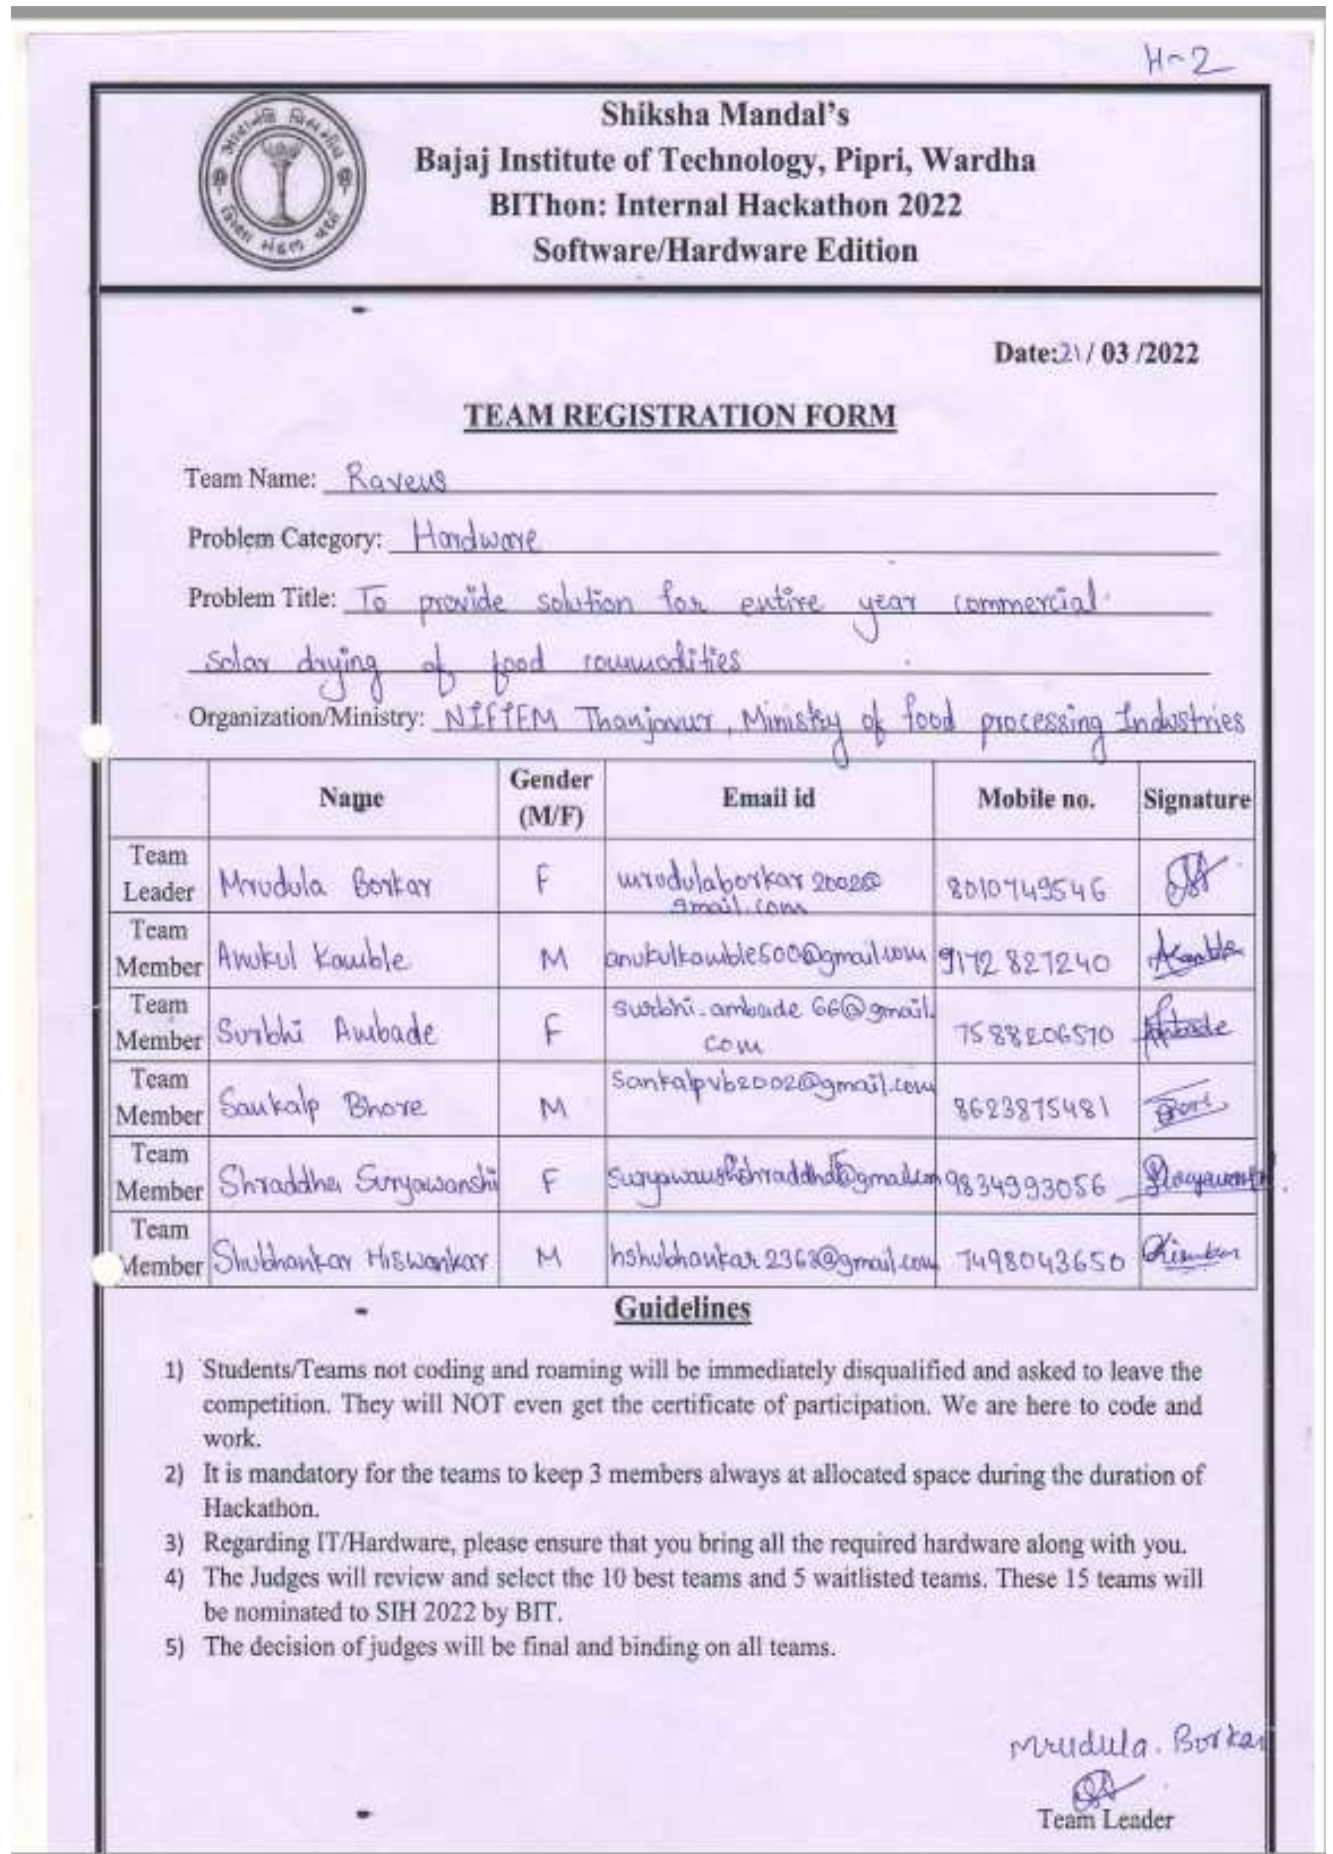 H-2
Shiksha Mandal's
Bajaj Institute of Technology, Pipri, Wardha
BIThon: Internal Hackathon 2022
Software/Hardware Edition
Date:21/ 03 /2022
TEAM REGISTRATION FORM
Team Name: Ravens
Problem Category: Hardware
Problem Title: To provide solution for entire year commercial
solar drying of food commodities
Organization/Ministry: NIFTEM Thanjavur, Ministry of food processing Industries
Name Gender (M/F) Email id Mobile no. Signature
Team Leader Mrudula Borkar F mrudulaborkar2002@gmail.com 8010749546
Team Member Anukul Kamble M anukulkamble500@gmail.com 9172827240 Kamble
Team Member Surbhi Ambade F surbhi.ambade66@gmail.com 7588206570 Ambade
Team Member Sankalp Bhore M sankalpvb2002@gmail.com 8623875481
Team Member Shraddha Suryawanshi F 9834993056
Team Member Shubhankar Hiswankar M hshubhankar2362@gmail.com 7498043650
Guidelines
1) Students/Teams not coding and roaming will be immediately disqualified and asked to leave the
competition. They will NOT even get the certificate of participation. We are here to code and
work.
2) It is mandatory for the teams to keep 3 members always at allocated space during the duration of
Hackathon.
3) Regarding IT/Hardware, please ensure that you bring all the required hardware along with you.
4) The Judges will review and select the 10 best teams and 5 waitlisted teams. These 15 teams will
be nominated to SIH 2022 by BIT.
5) The decision of judges will be final and binding on all teams.
Mrudula. Borkar
Team Leader